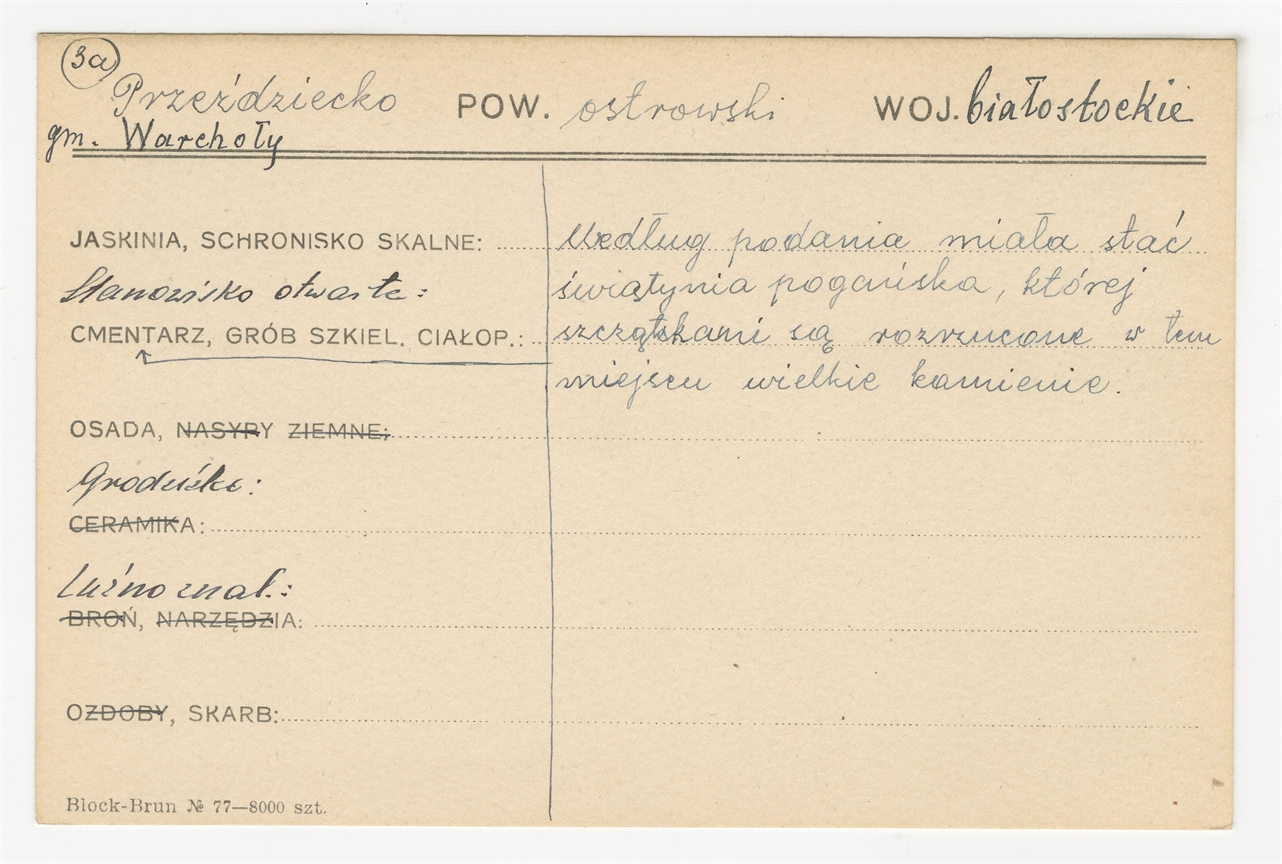 3a
Przeździecko POW. ostrowski WOJ. białostockie
gm. Warchoły
JASKINIA, SCHRONISKO SKALNE: Według podania miała stać
Stanowisko otwarte: świątynia pogańska, której
CMENTARZ, GRÓB SZKIEL. CIAŁOP.: szczątkami są rozrzucone w tem
miejscu wielkie kamienie.
OSADA, NASYPY ZIEMNE:
Grodziska:
CERAMIKA:
Luźno znal.:
BROŃ, NARZĘDZIA:
OZDOBY, SKARB:
Block-Brun № 77—8000 szt.